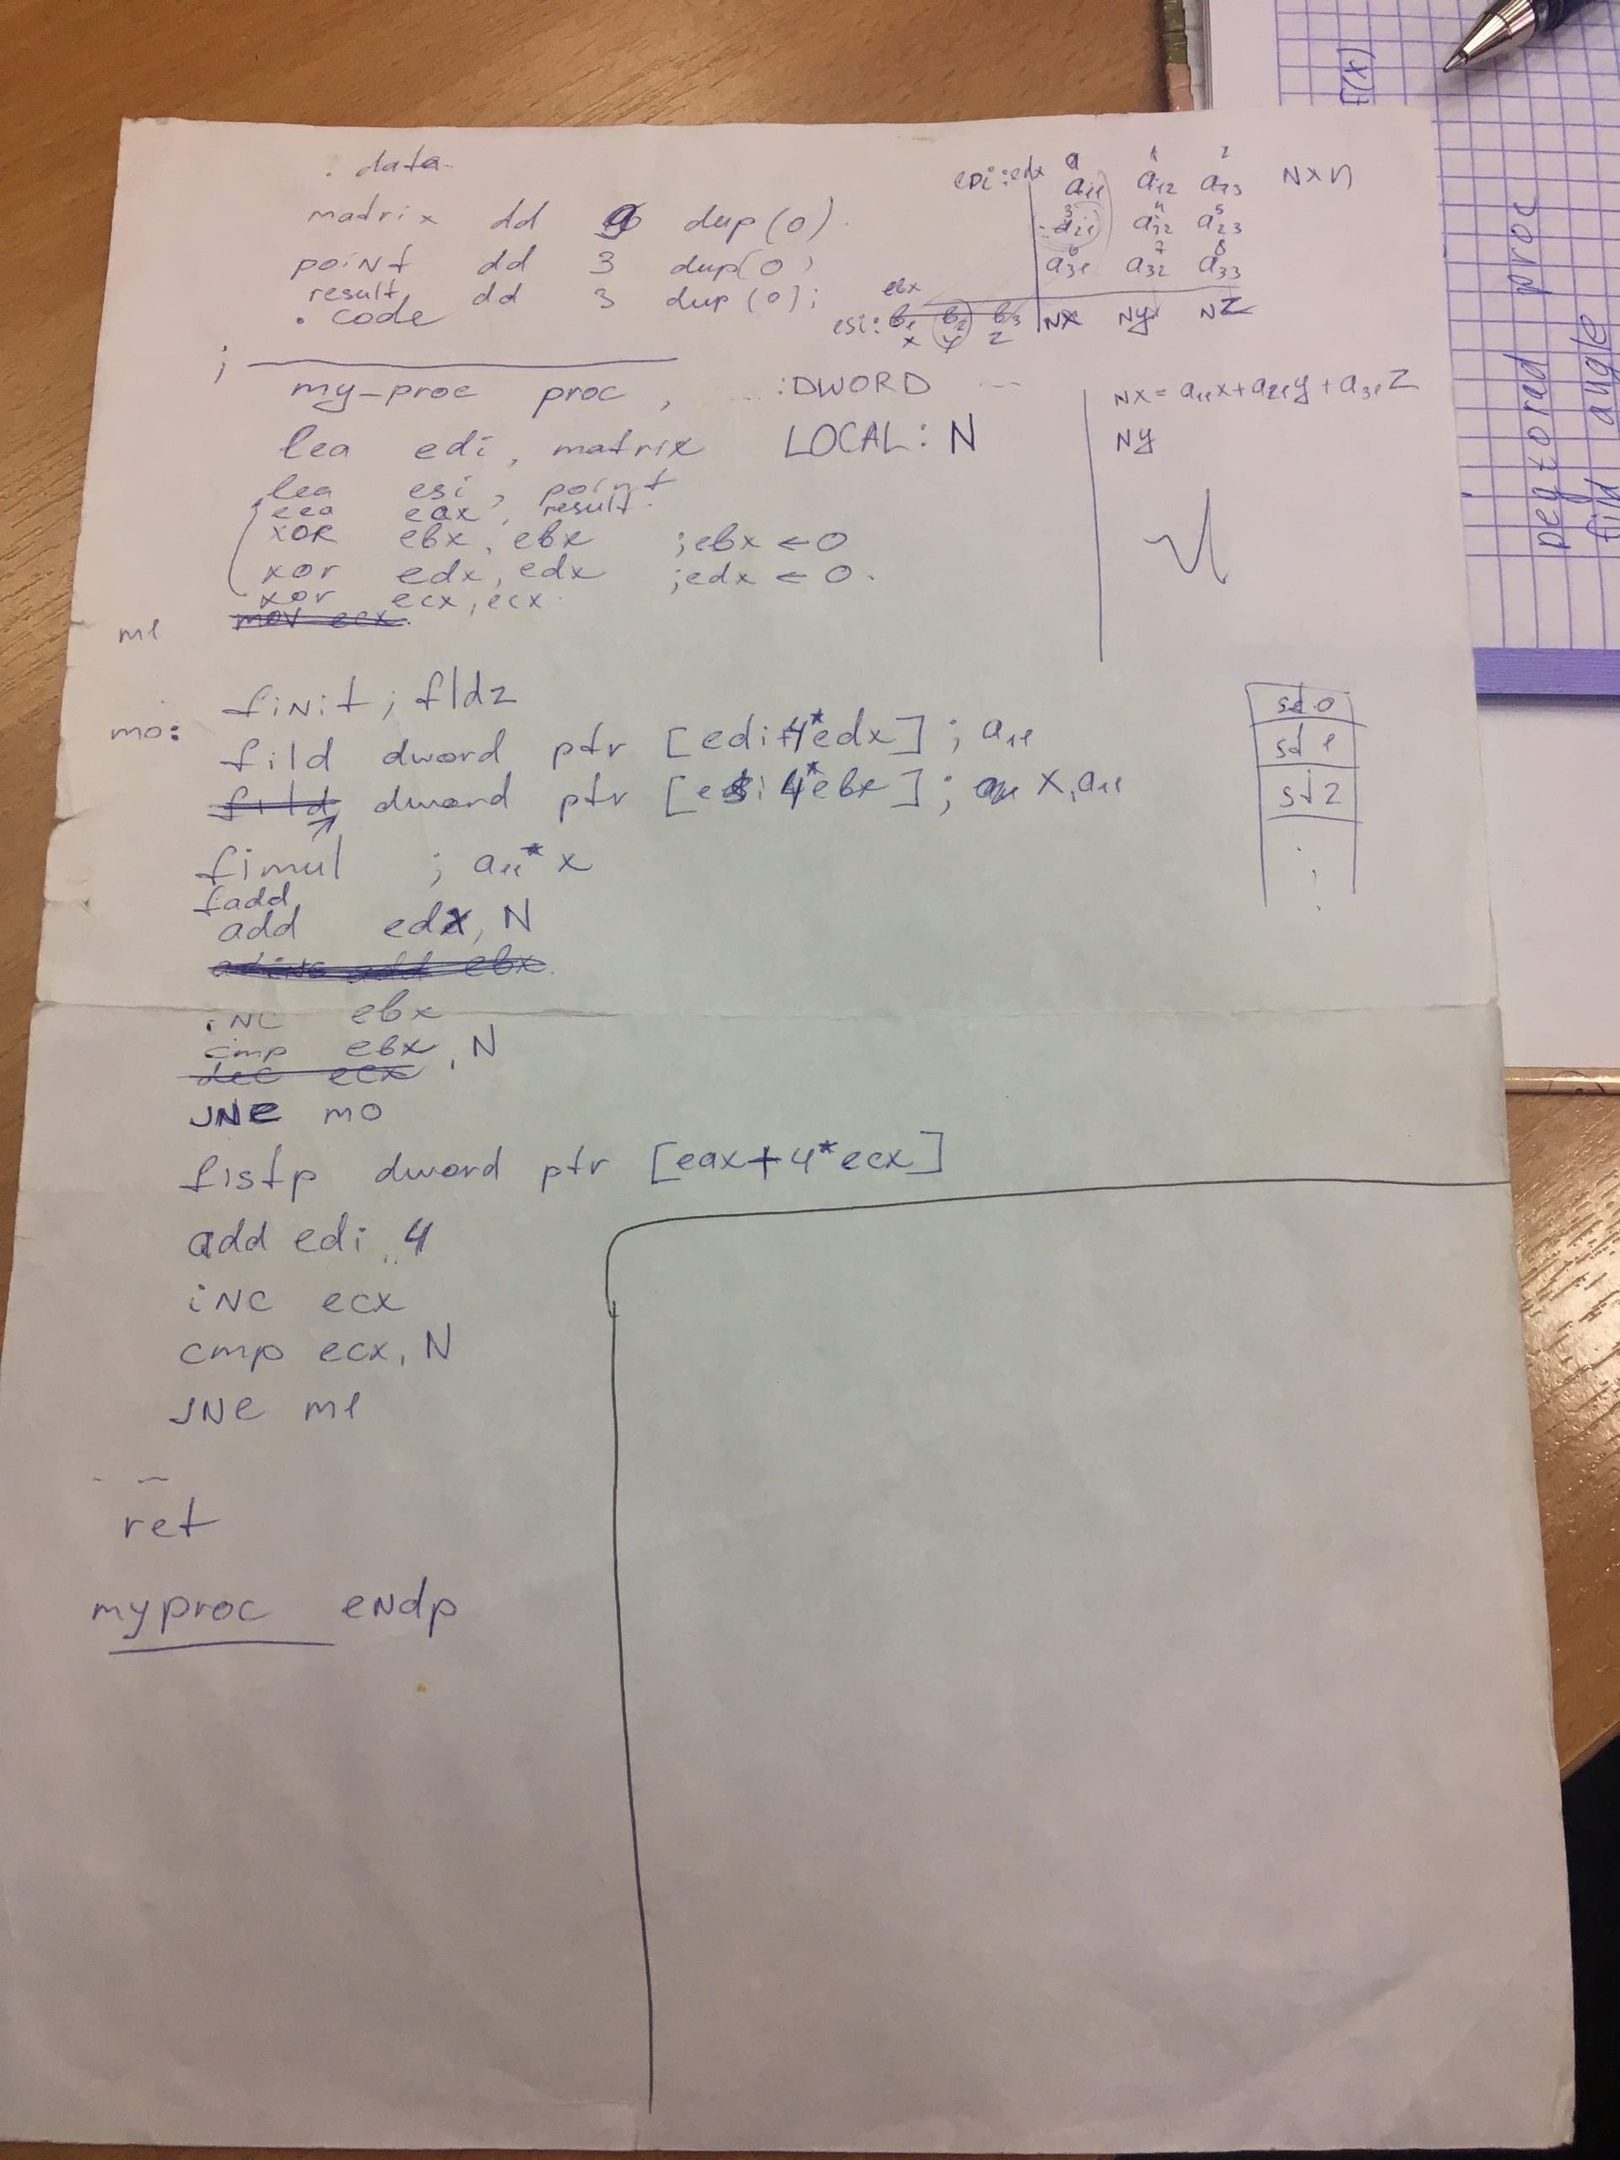 .data
matrix dd 9 dup(0)
point dd 3 dup(0)
result dd 3 dup(0);
.code
edi:edx
0 1 2
a11 a12 a13 NXN
3 4 5
a21 a22 a23
6 7 8
a31 a32 a33
ebx
esi: b1 b2 b3 NX NY NZ
x y z
;
my-proc proc, :DWORD ---
lea edi, matrix LOCAL: N
lea esi, point
lea eax, result
xor ebx, ebx ;ebx ← 0
xor edx, edx ;edx ← 0.
xor ecx, ecx
mov ecx
m1
NX = a11x+a21y+a31z
NY
finit; fldz
mo: fild dword ptr [edi+4*edx]; a11
fild dword ptr [esi 4*ebx]; x, a11
fimul ; a11*x
fadd
add edx, N
inc ebx
cmp ebx, N
dec ecx
JNE mo
fistp dword ptr [eax+4*ecx]
add edi, 4
inc ecx
cmp ecx, N
JNE m1
ret
myproc endp
st0
st1
st2
F(x)
proc
find angle